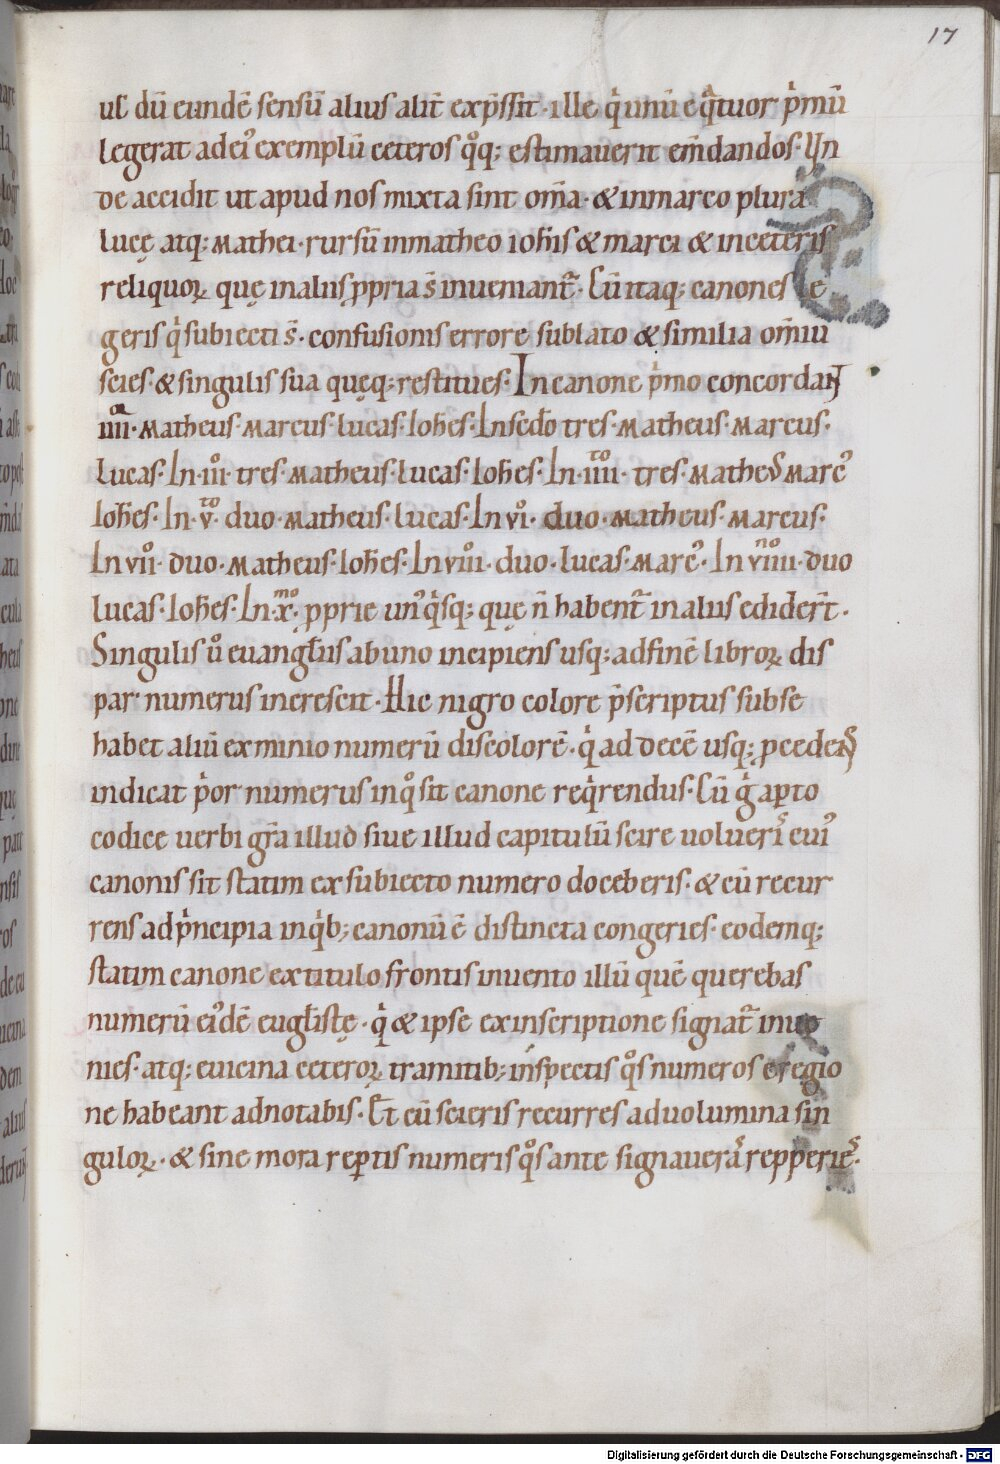 17
ul dū eundē sensū alius alit̄ exp̄ssit · ille q̇ unū e q̇tuor ṗmū
legerat ad ei᾽ exemplū ceteros qͦq; estimauerit em̄dandos · Vn
de accidit ut apud nos mixta sint om̄a · & in marco plura
lucę atq; mathei · rursū in matheo ioh̄is & marci & in ceteris
reliquoꝝ quę in aliis ꝓpria s̄ inueniant᷒ · Cū itaq; canones le
geris q̇ subiecti s̄ · confusionis errore sublato & similia om̄iū
scies · & singulis sua quęq; restitues · In canone ṗmo concordaɴᴛ
iiiiᵒʳ · Matheus · Marcus · lucas · Ioh̄es · In sc̄do tres · Matheus · Marcus ·
Lucas · In · iiiͦ · tres · Matheus · Lucas · Ioh̄es · In · iiiiᵗᵒ · tres · Matheus Marc᾽
Ioh̄es · In · vᵗᵒ · duo · Matheus · Lucas · In viͦ · duo · Matheus · Marcus ·
In viiͦ · duo · Matheus · Ioh̄es · In viiiͦ · duo · Lucas · Marc᾽ · In viiiiⁿᵒ · duo
Lucas · Ioh̄es · In · xᵐᵒ · ꝓprie un᾽q̇sq; quę n̄ habent᷒ in aliis edider̄t ·
Singulis ů euangl̄iis ab uno incipiens usq; ad finē libroꝝ dis
par numerus increscit · Hic nigro colore p̄scriptus sub se
habet aliū ex minio numerū discolorē · q̇ ad decē usq; ꝓcedeɴs
indicat ṗor numerus in qͦ sit canone req̇rendus · Cū g̊ aꝑto
codice uerbi gr̄a illud siue illud capitulū scire uolueri᷒ cui᾽
canonis sit statim ex subiecto numero doceberis · & cū recur
rens ad ṗncipia in q̇b; canonū ē distincta congeries · eodemq;
statim canone ex titulo frontis inuento illū quē querebas
numerū ei᾽dē eugl̄istę · q̇ & ipse ex inscriptione signat᷒ inue
nies · atq; e uicina ceteroꝝ tramitib; inspectis qͦs numeros e regio
ne habeant adnotabis · Et cū scieris recurres ad uolumina sin
guloꝝ · & sine mora reꝑtis numeris qͦs ante signauera᷒ repperie᷒ ·
Digitalisierung gefördert durch die Deutsche Forschungsgemeinschaft - DFG